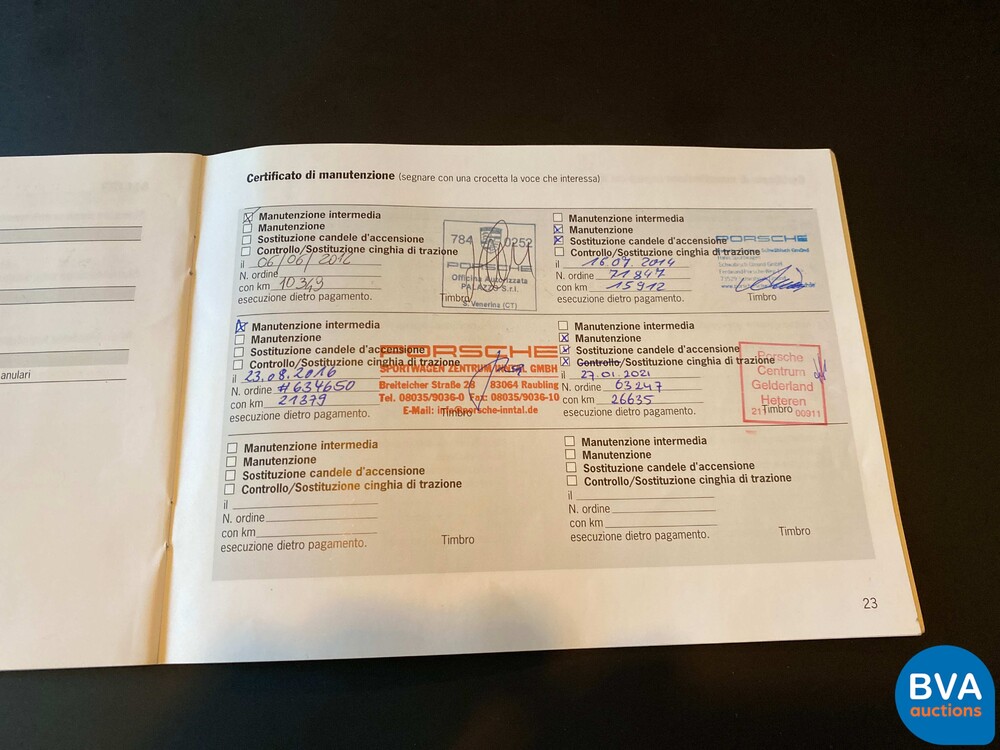 anulari
Certificato di manutenzione (segnare con una crocetta la voce che interessa)
Manutenzione intermedia
Manutenzione
Sostituzione candele d'accensione
Controllo/Sostituzione cinghia di trazione
il 06/06/2012
N. ordine
con km 10349
esecuzione dietro pagamento.
Timbro
784 0252
PORSCHE
Officina Autorizzata
PALAZZO S.r.l.
S. Venerina (CT)
Manutenzione intermedia
Manutenzione
Sostituzione candele d'accensione
Controllo/Sostituzione cinghia di trazione
il 16.07.2014
N. ordine 71847
con km 15912
esecuzione dietro pagamento.
Timbro
PORSCHE
Manutenzione intermedia
Manutenzione
Sostituzione candele d'accensione
Controllo/Sostituzione cinghia di trazione
il 23.08.2016
N. ordine #634650
con km 21379
esecuzione dietro pagamento.
Timbro
PORSCHE
SPORTWAGEN ZENTRUM INNTAL GMBH
Breiteicher Straße 28 83064 Raubling
Tel. 08035/9036-0 Fax: 08035/9036-10
E-Mail: info@porsche-inntal.de
Manutenzione intermedia
Manutenzione
Sostituzione candele d'accensione
Controllo/Sostituzione cinghia di trazione
il 27.01.2021
N. ordine 63247
con km 26635
esecuzione dietro pagamento.
Timbro
Porsche
Centrum
Gelderland
Heteren
21 00911
Manutenzione intermedia
Manutenzione
Sostituzione candele d'accensione
Controllo/Sostituzione cinghia di trazione
il
N. ordine
con km
esecuzione dietro pagamento.
Timbro
Manutenzione intermedia
Manutenzione
Sostituzione candele d'accensione
Controllo/Sostituzione cinghia di trazione
il
N. ordine
con km
esecuzione dietro pagamento.
Timbro
23
BVA
auctions